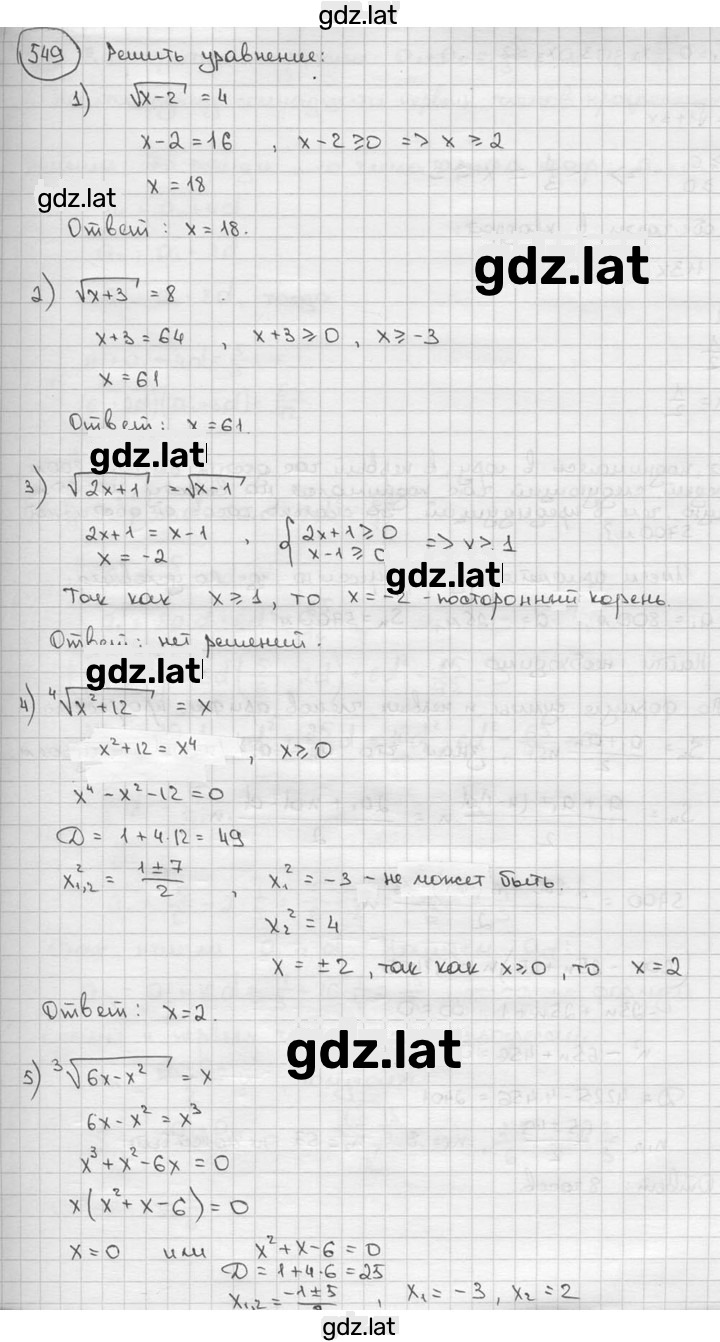 gdz.lat
549 Решить уравнение:
1) √x-2 = 4
x-2=16 , x-2≥0 => x≥2
x=18
gdz.lat
Ответ: x=18.
gdz.lat
2) √x+3 = 8
x+3=64 , x+3≥0, x≥-3
x=61
Ответ: x=61.
gdz.lat
3) √2x+1 = √x-1
2x+1 = x-1 , { 2x+1≥0
x = -2 x-1≥0 => x≥1
gdz.lat
Так как x≥1, то x=-2 - посторонний корень.
Ответ: нет решений.
gdz.lat
4) ⁴√x²+12 = x
x²+12 = x⁴ , x≥0
x⁴-x²-12=0
D = 1+4·12 = 49
x²₁,₂ = 1±7/2 , x₁² = -3 - не может быть.
x₂² = 4
x = ±2, так как x≥0, то x=2
Ответ: x=2.
gdz.lat
5) ³√6x-x² = x
6x-x² = x³
x³+x²-6x=0
x(x²+x-6)=0
x=0 или x²+x-6=0
D = 1+4·6=25
x₁,₂ = -1±5/2 , x₁=-3, x₂=2
gdz.lat